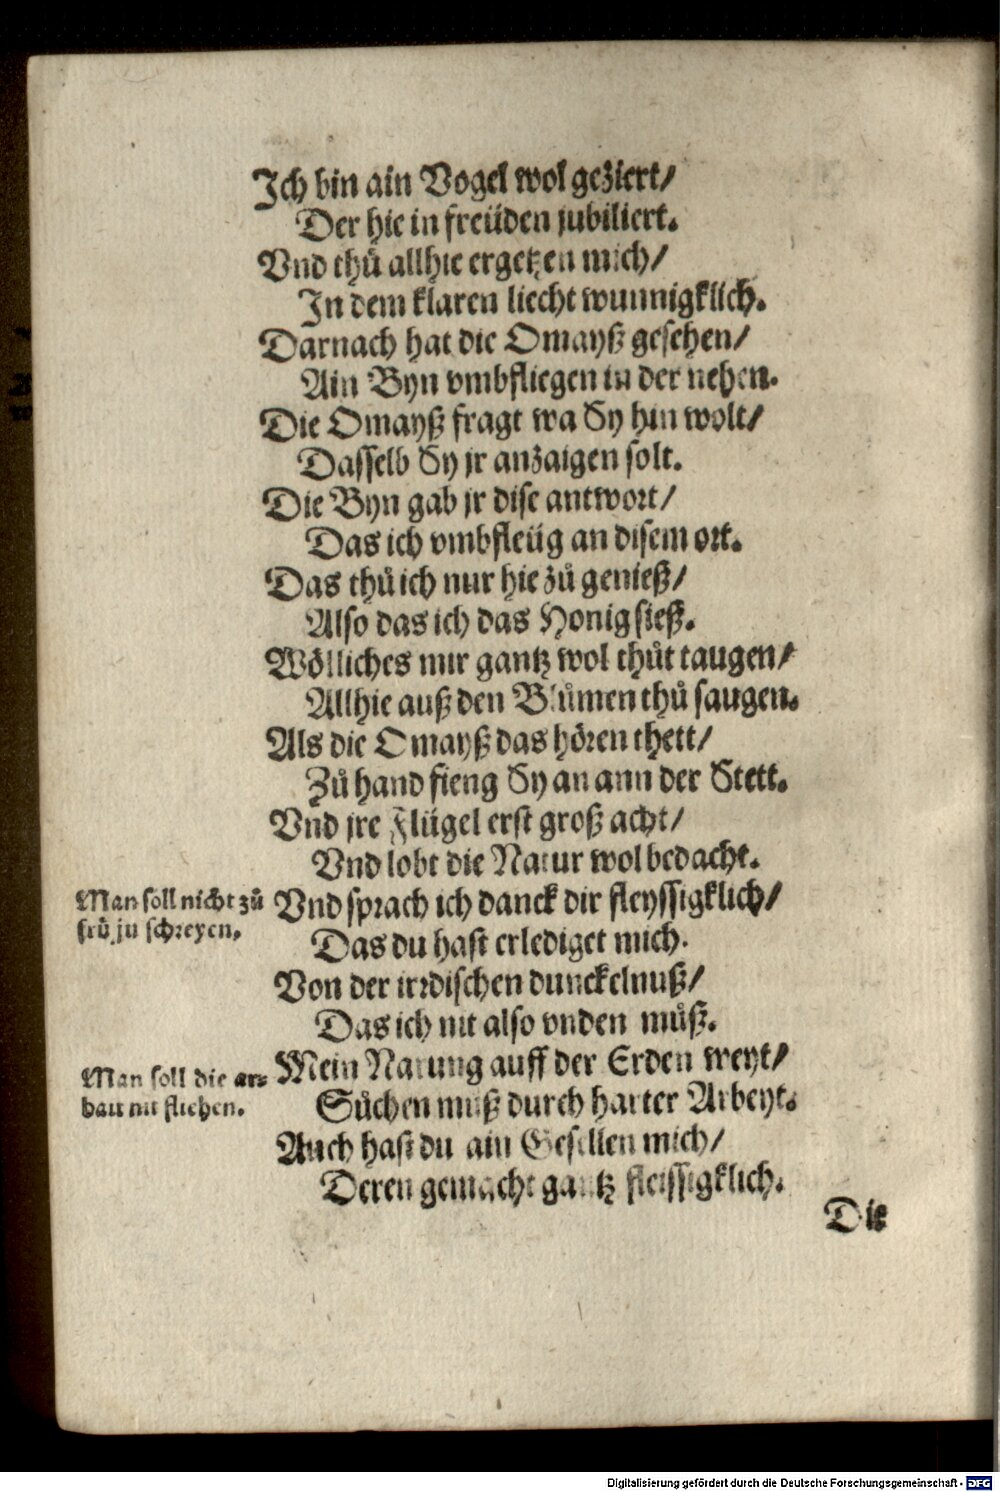 Ich bin ain Vogel wol geziert/
Der hie in freüden jubiliert.
Vnd thů allhie ergetzen mich/
In dem klaren liecht wunnigklich.
Darnach hat die Omayß gesehen/
Ain Byn vmbfliegen in der nehen.
Die Omayß fragt wa Sy hin wolt/
Dasselb Sy jr anzaigen solt.
Die Byn gab jr dise antwort/
Das ich vmbfleüg an disem ort.
Das thů ich nur hie zů genieß/
Also das ich das Honig sieß.
Wölliches mir gantz wol thůt taugen/
Allhie auß den Blůmen thů saugen.
Als die Omayß das hören thett/
Zů hand fieng Sy an ann der Stett.
Vnd jre Flügel erst groß acht/
Vnd lobt die Natur wol bedacht.
Man soll nicht zů
frů ju schreyen.
Vnd sprach ich danck dir fleyssigklich/
Das du hast erlediget mich.
Von der irrdischen dunckelnuß/
Das ich nit also vnden můß.
Man soll die ar-
bait nit fliehen.
Mein Narung auff der Erden weyt/
Sůchen muß durch harter Arbeyt.
Auch hast du ain Gesellen mich/
Deren gemacht gantz fleissigklich.
Die
Digitalisierung gefördert durch die Deutsche Forschungsgemeinschaft - DFG